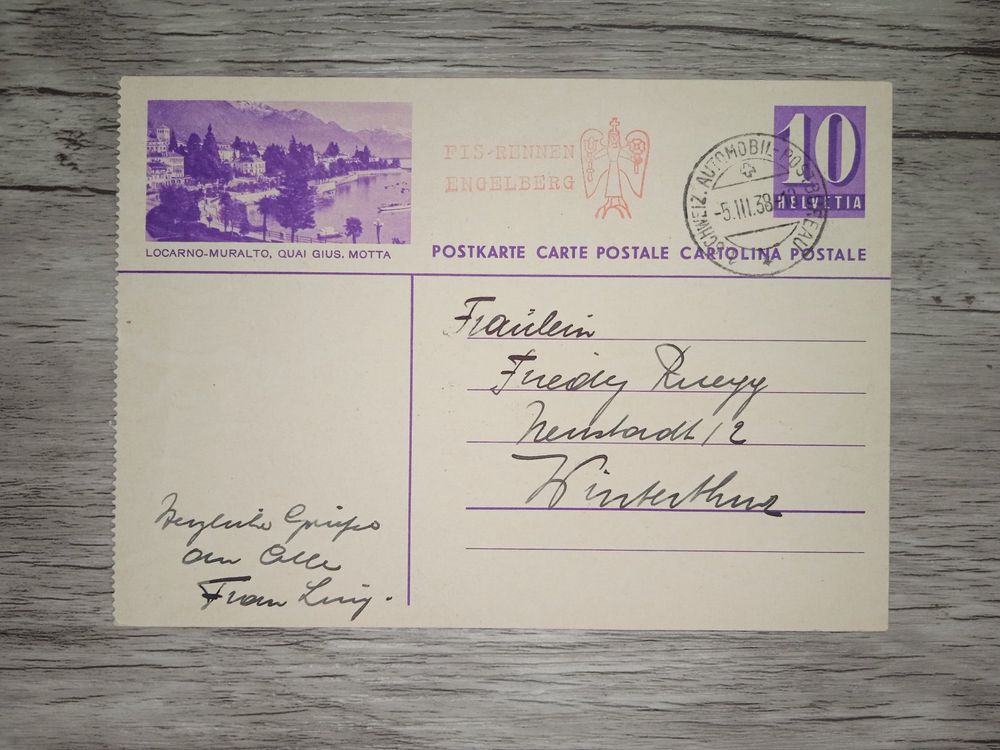 LOCARNO-MURALTO, QUAI GIUS. MOTTA
FIS-RENNEN
ENGELBERG
SCHWEIZ. AUTOMOBIL-POSTBUREAU
-5.III.38
10
HELVETIA
POSTKARTE CARTE POSTALE CARTOLINA POSTALE
Fräulein
Friedy Ruegg
Neustadt 12
Winterthur
Herzliche Grüße
an Alle
Frau